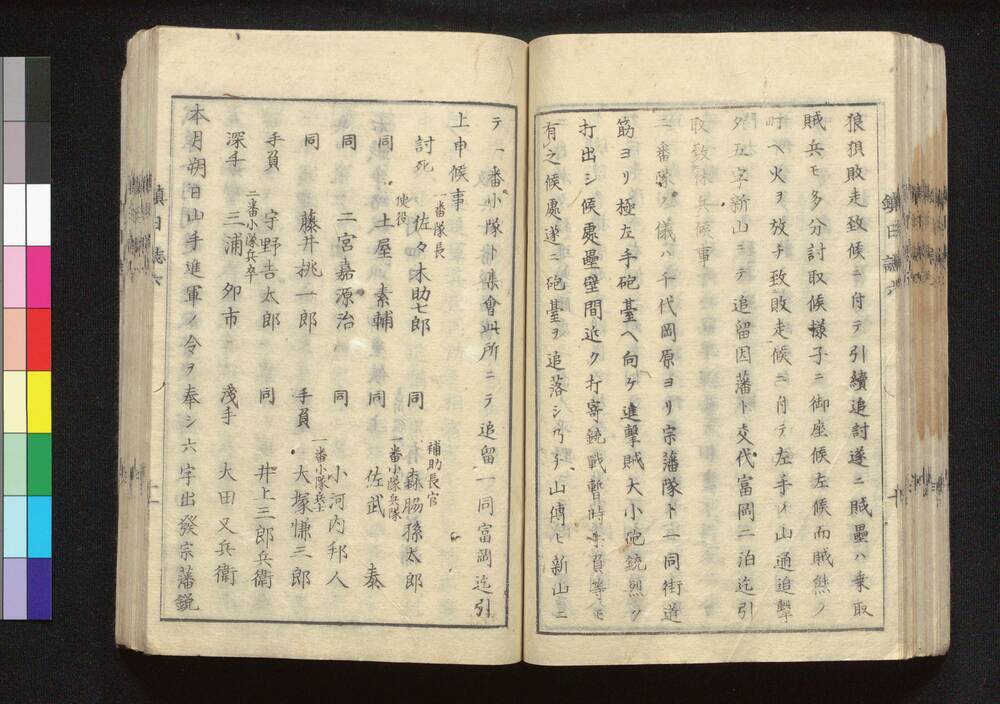 狼狽敗走致候ニ付テ引續追討遂ニ賊壘ハ乗取
賊兵モ多分討取候様子ニ御座候左候而賊熊ノ
町ヘ火ヲ放チ致敗走候ニ付テ左手ノ山通追撃
夕五字新山ニテ追留因藩ト交代富岡ニ泊迄引
取致休兵候事
二番隊ノ儀ハ千代岡原ヨリ宗藩隊ト一同街道
筋ヨリ極左手砲臺ヘ向ケ進撃賊大小砲銃烈ク
打出シ候處壘壁間近ク打寄銃戰暫時手負等モ
有之候處遂ニ砲臺ヲ追落シ乃チ山傳ヒ新山ニ
テ一番小隊ト集會此所ニテ追留一同富岡迄引
上申候事
一番隊長 補助長官
討死 佐々木助七郎 同 森脇孫太郎
使役 一番小隊兵隊
同 土屋素輔 同 佐武 泰
同 二宮嘉源治 同 小河内邦人
一番小隊兵士
同 藤井挑一郎 手負 大塚慊三郎
手負 宇野吉太郎 同 井上三郎兵衛
二番小隊兵卒
深手 三浦卯市 淺手 大田又兵衛
本月朔日山手進軍ノ令ヲ奉シ六字出發宗藩鋭
鎮日誌六